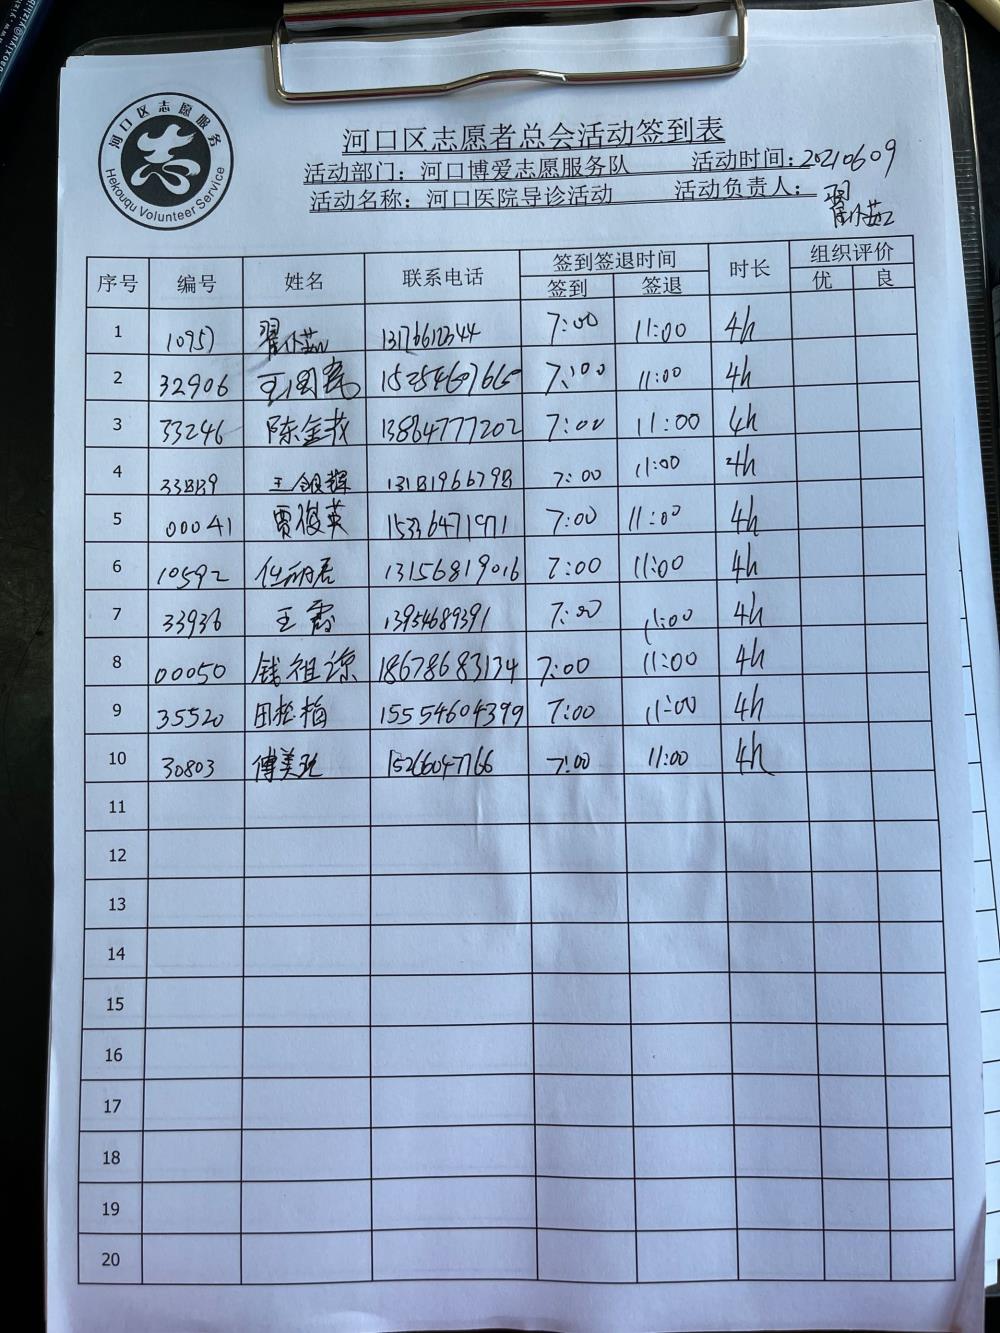 河口区志愿服务
Hekouqu Volunteer Service
河口区志愿者总会活动签到表
活动部门：河口博爱志愿服务队 活动时间：20210609
活动名称：河口医院导诊活动 活动负责人：
序号 编号 姓名 联系电话 签到签退时间 时长 组织评价
签到 签退 优 良
1 10957 7:00 11:00 4h
2 32906 7:00 11:00 4h
3 33246 陈金 13864777202 7:00 11:00 4h
4 王 7:00 11:00 4h
5 00041 贾俊英 7:00 11:00 4h
6 10592 13156819016 7:00 11:00 4h
7 33936 王霞 13954689391 7:00 11:00 4h
8 00050 钱祖 18678683134 7:00 11:00 4h
9 35520 田松梅 15554604399 7:00 11:00 4h
10 30803 傅美 15266047766 7:00 11:00 4h
11
12
13
14
15
16
17
18
19
20